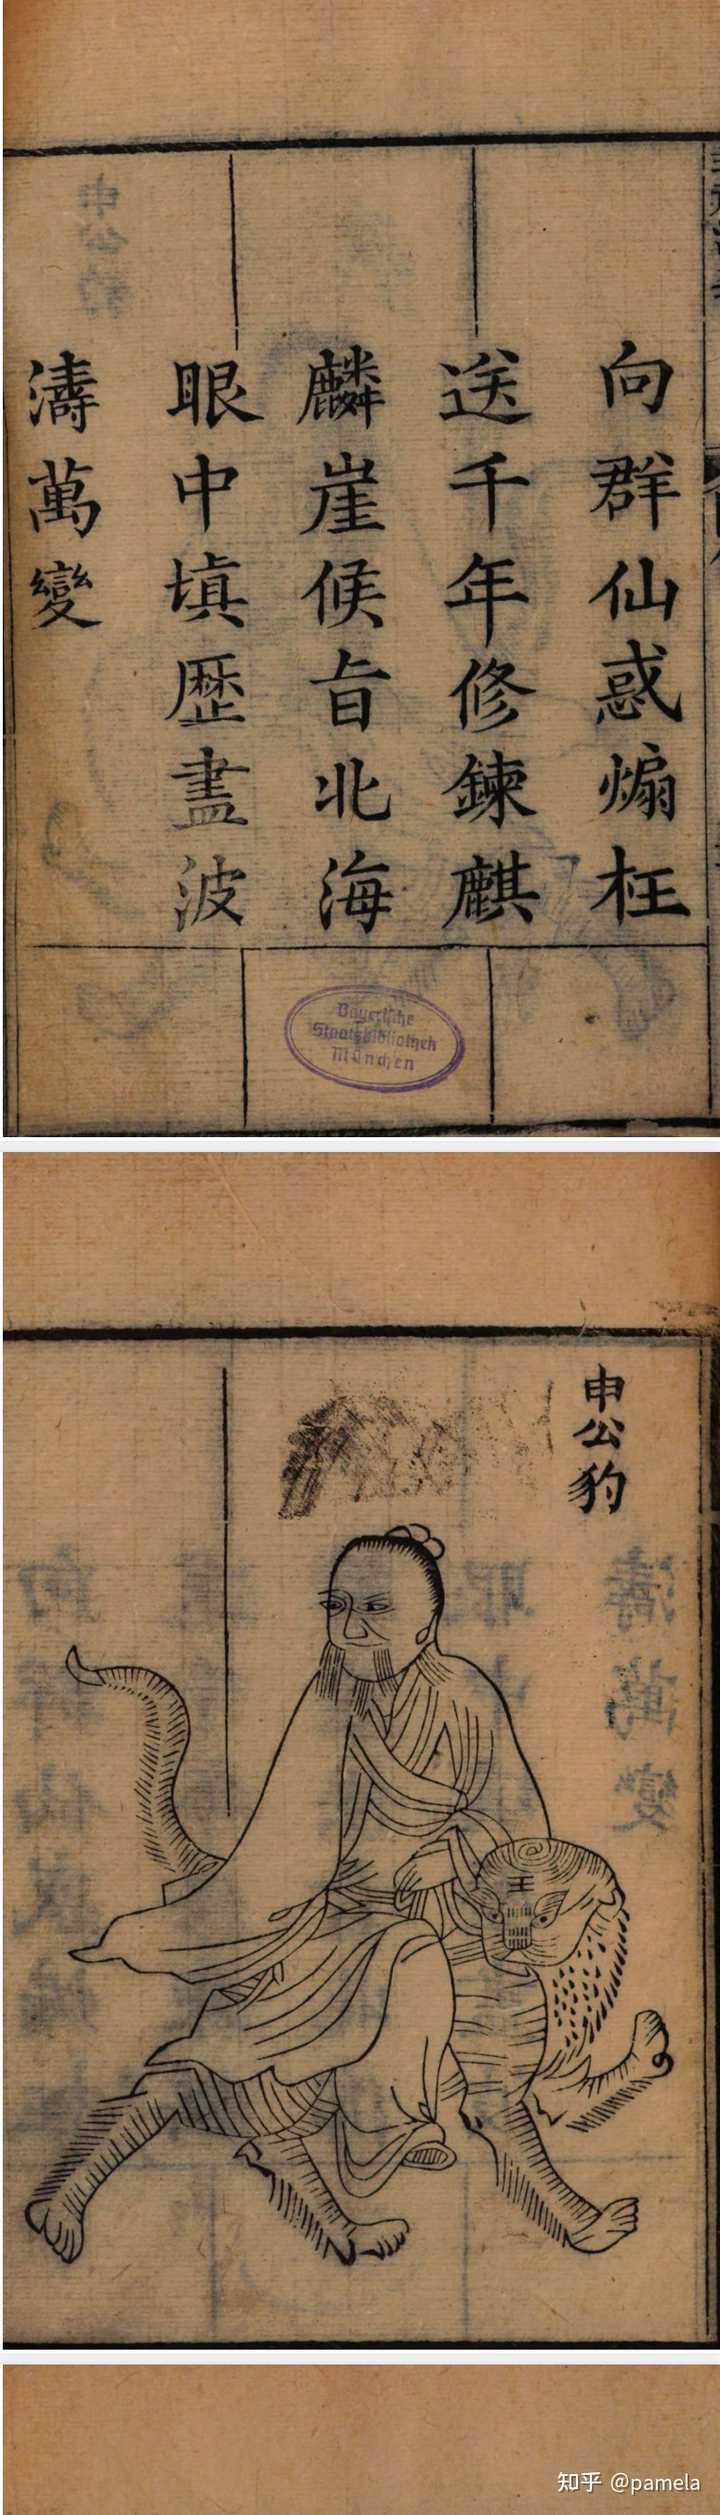 向群仙惑煽枉
送千年修鍊麒
麟崖候旨北海
眼中填歷盡波
濤萬變
Bayerische
Staatsbibliothek
München
申公豹
王
知乎 @pamela